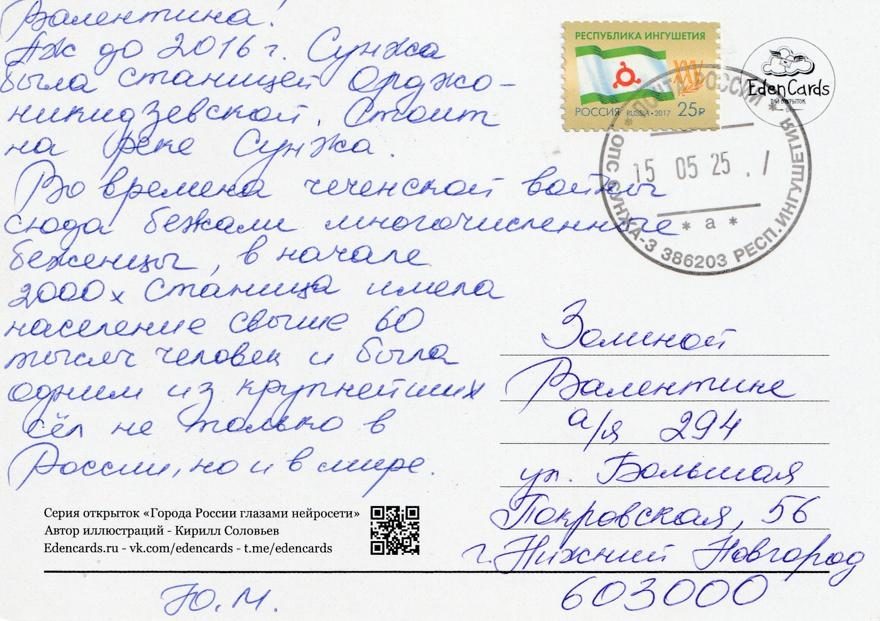 Валентина!
Аж до 2016 г. Сунжа
была станицей Орджо-
никидзевской. Стоит
на реке Сунжа.
Во времена чеченской войны
сюда бежали многочисленные
беженцы, в начале
2000х станица имела
население свыше 60
тысяч человек и была
одним из крупнейших
сёл не только в
России, но и в мире.
Ю.М.
РЕСПУБЛИКА ИНГУШЕТИЯ
РОССИЯ RUSSIA • 2017 25₽
EdenCards
ДЛЯ ОТКРЫТОК
* ПОЧТА РОССИИ *
15 05 25 . /
* а *
ОПС СУНЖА-3 386203 РЕСП. ИНГУШЕТИЯ
Зоминой
Валентине
а/я 294
ул. Большая
Покровская, 56
г. Нижний Новгород
603000
Серия открыток «Города России глазами нейросети»
Автор иллюстраций - Кирилл Соловьев
Edencards.ru - vk.com/edencards - t.me/edencards